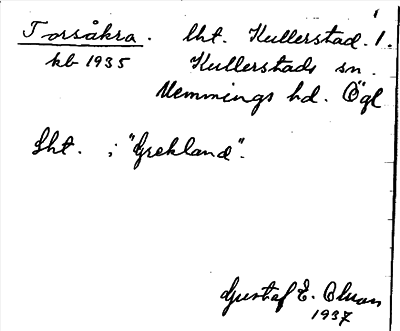 Torsåkra. lht. Kullerstad. 1.
kb 1935 Kullerstads sn.
Memmings hd. Ögl
Lht. : "Grekland".
Gustaf E. Olson
1937